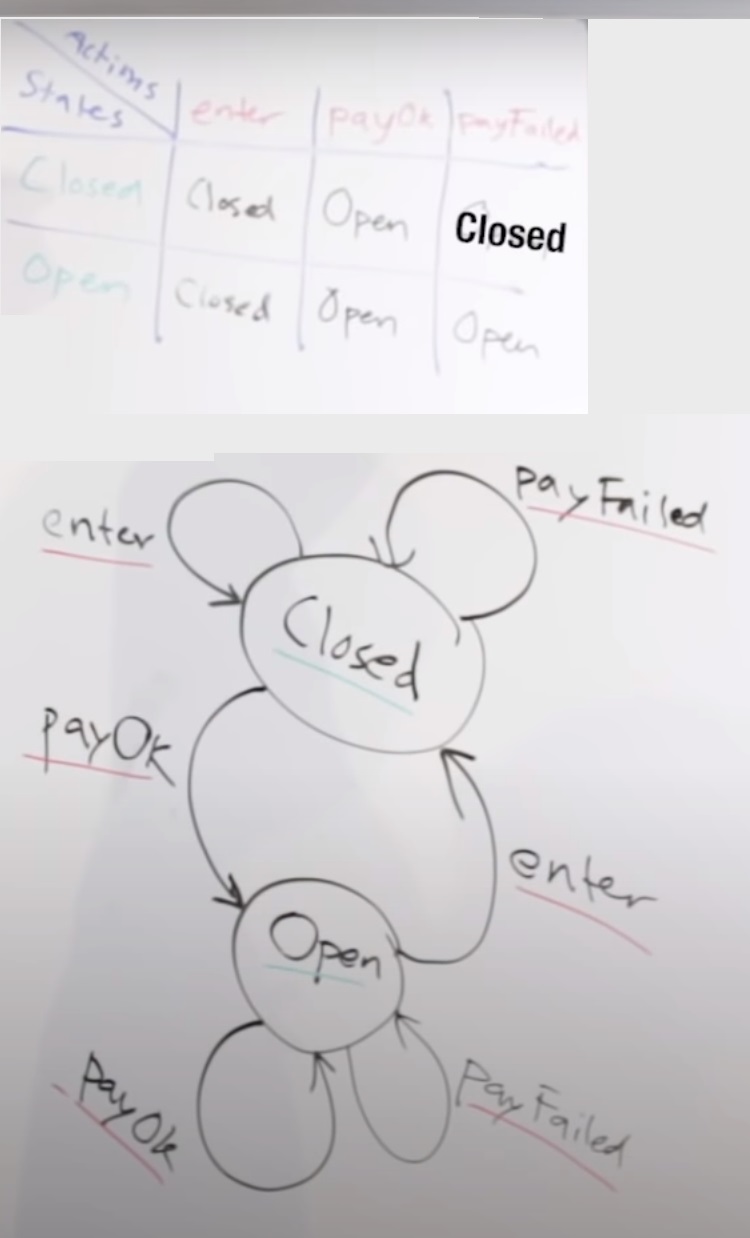 Actions
States
enter
payOk
payFailed
Closed
Closed
Open
Closed
Open
Closed
Open
Open
payFailed
enter
Closed
payOk
enter
Open
PayOk
PayFailed